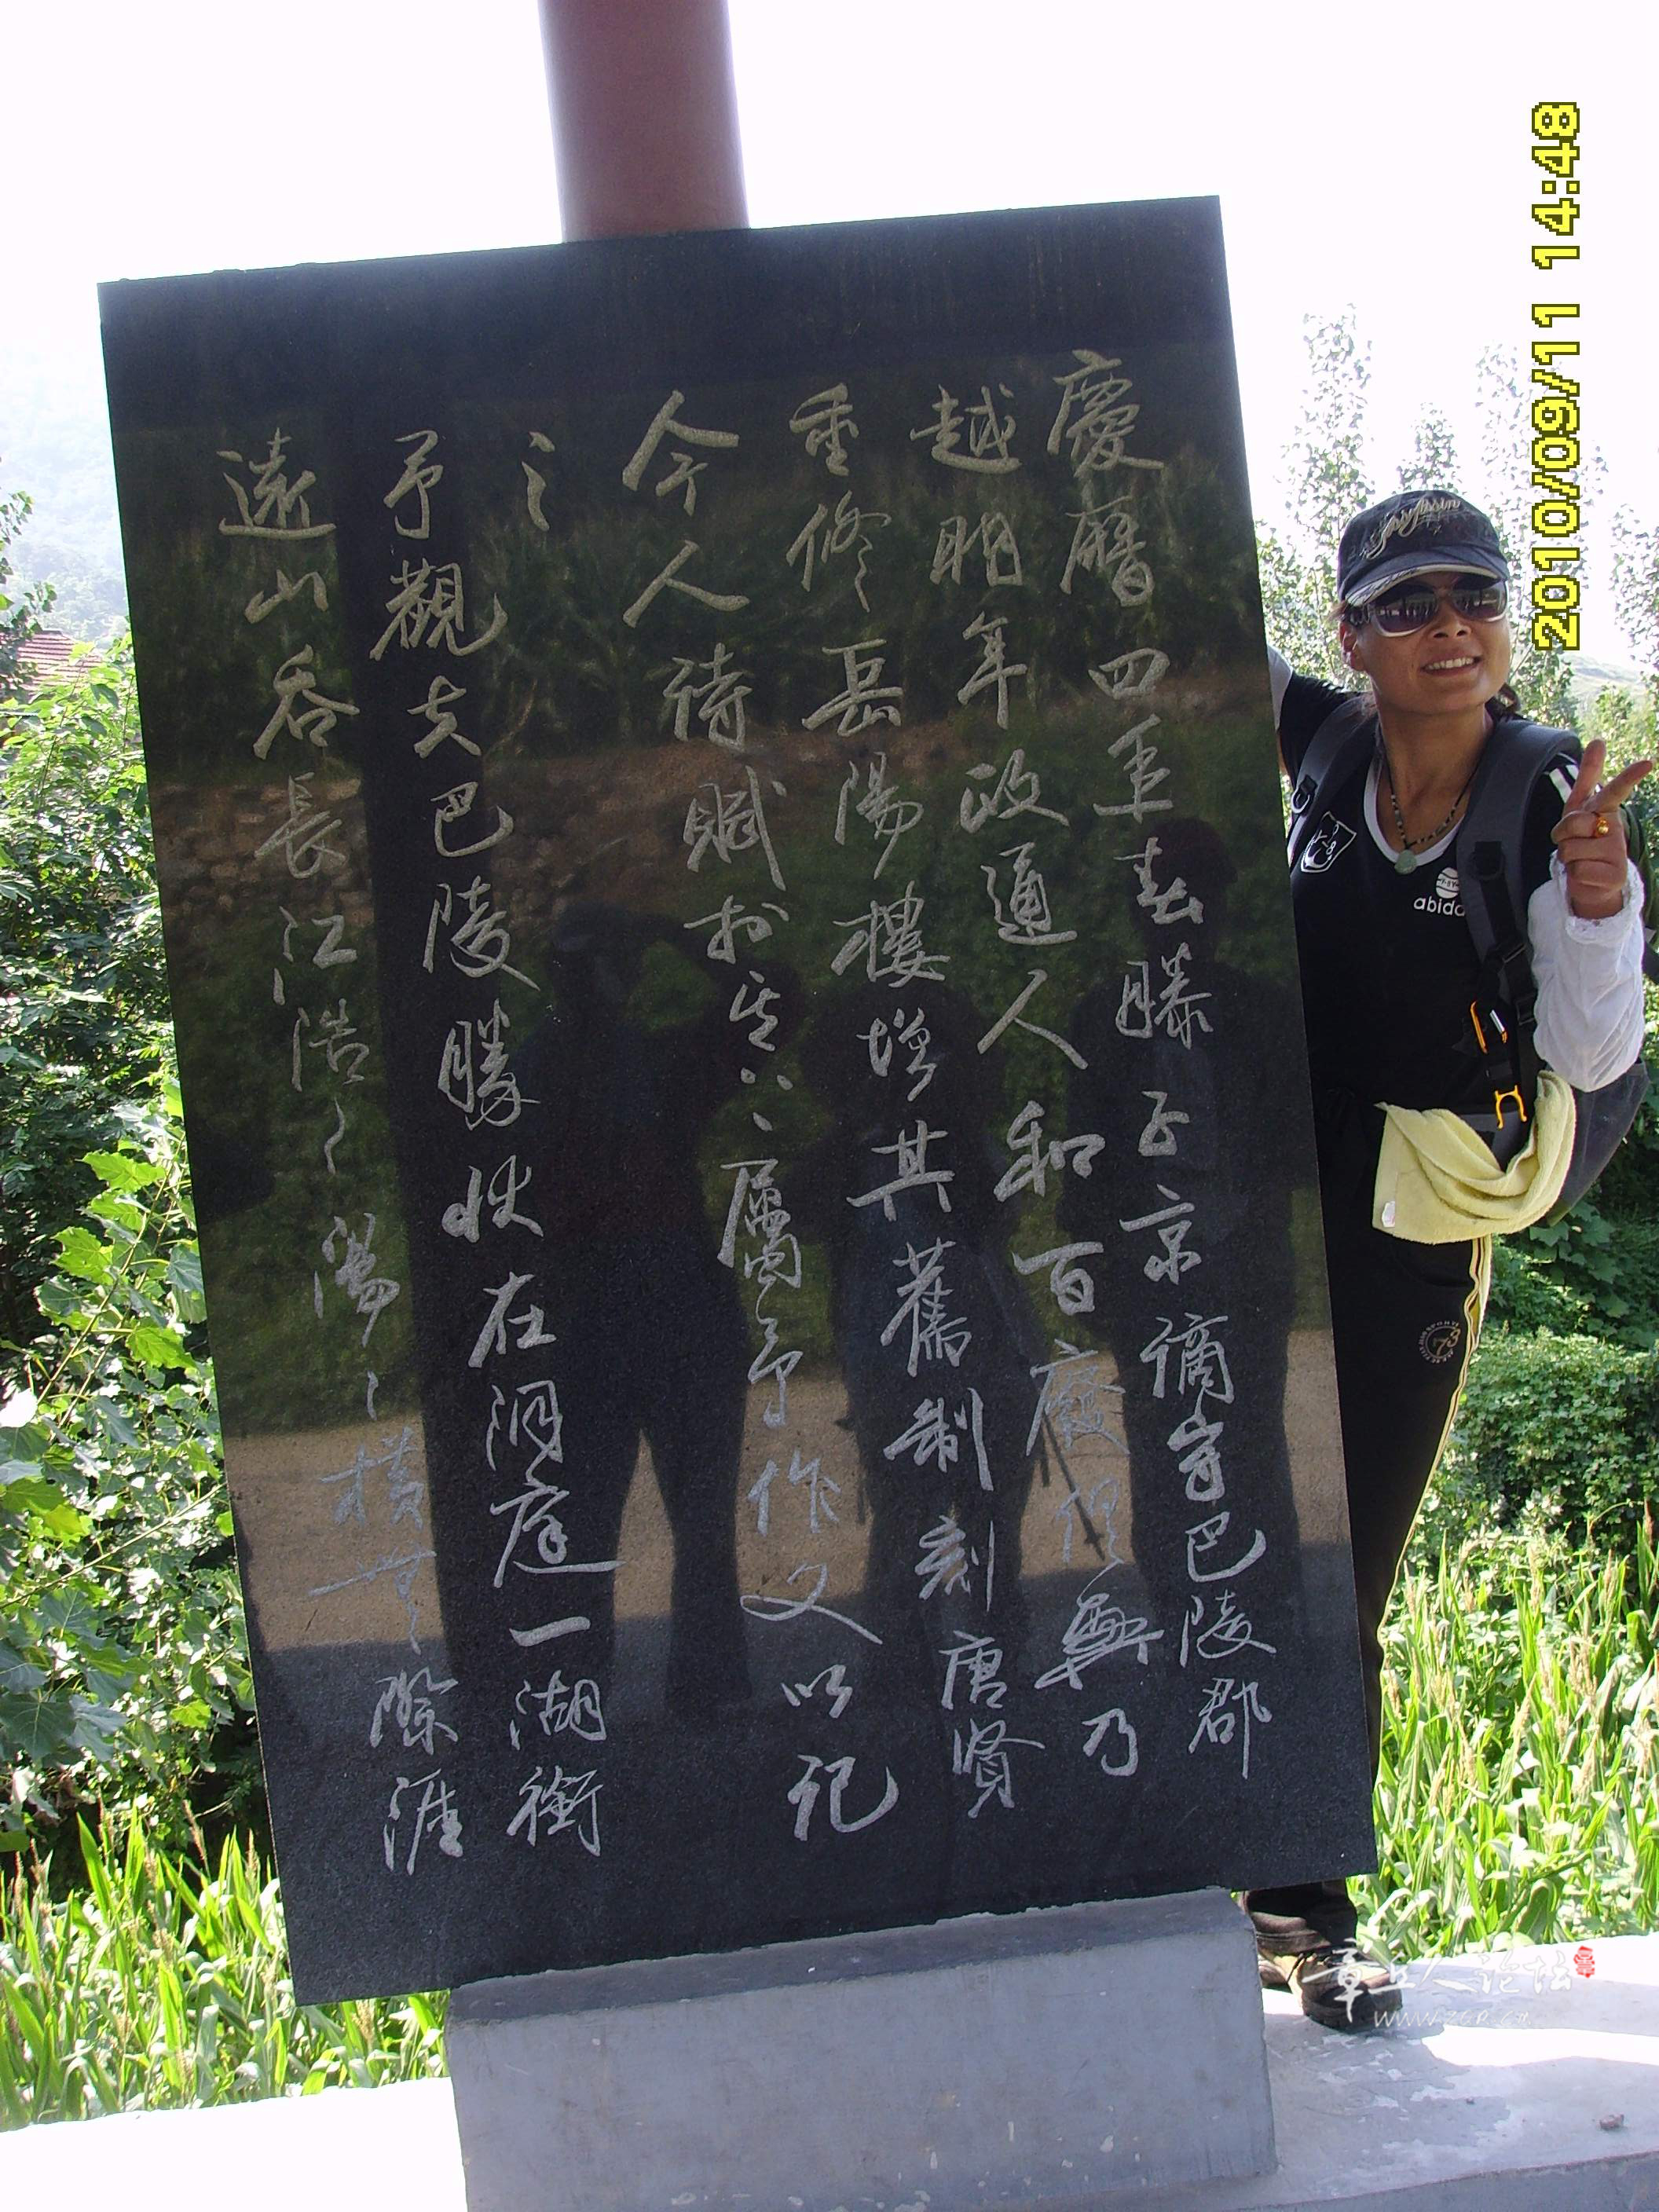 慶曆四年春滕子京謫守巴陵郡
越明年政通人和百廢俱興乃
重修岳陽樓增其舊制刻唐賢
今人詩賦於其上屬予作文以記
之
予觀夫巴陵勝狀在洞庭一湖銜
遠山吞長江浩々湯々橫無際涯
2010/09/11 14:48
章丘人论坛